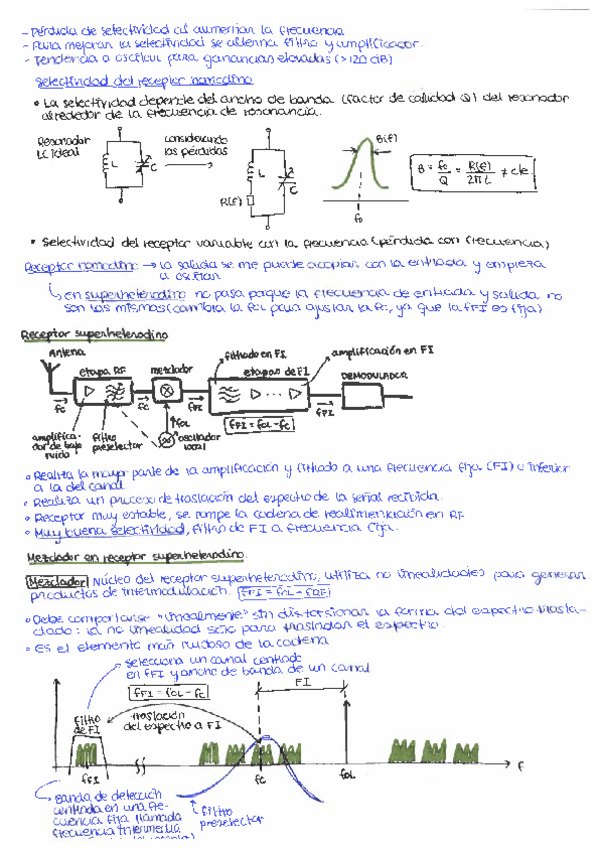 - Pérdida de selectividad al aumentar la frecuencia
- Para mejorar la selectividad se alterna filtro y amplificador.
- Tendencia a oscilar para ganancias elevadas (>120 dB)
Selectividad del receptor homodino
• La selectividad depende del ancho de banda (factor de calidad Q) del resonador
alrededor de la frecuencia de resonancia.
Resonador
LC ideal
L
C
considerando
las pérdidas
L
C
R(f)
B(f)
f₀
B = f₀/Q = R(f)/2πL ≠ cte
• Selectividad del receptor variable con la frecuencia (pérdida con frecuencia)
Receptor homodino → la salida se me puede acoplar con la entrada y empieza
a oscilar
↳ en superheterodino no pasa porque la frecuencia de entrada y salida no
son las mismas (cambia la fOL para ajustar la fc, ya que la fFI es fija)
Receptor superheterodino
Antena
etapa RF
mezclador
filtrado en FI
etapas de FI
amplificación en FI
DEMODULADOR
fc
fc
fFI
fOL
fFI = fOL - fc
fFI
amplifica-
dor de bajo
ruido
filtro
preselector
oscilador
local
• Realiza la mayor parte de la amplificación y filtrado a una frecuencia fija (FI) e inferior
a la del canal.
• Realiza un proceso de traslación del espectro de la señal recibida.
• Receptor muy estable, se rompe la cadena de realimentación en RF
• Muy buena selectividad, filtro de FI a frecuencia fija.
Mezclador en receptor superheterodino.
Mezclador Núcleo del receptor superheterodino, utiliza no linealidades para generar
productos de intermodulación. fFI = fOL - fRF
• Debe comportarse "linealmente" sin distorsionar la forma del espectro trasla-
dado: la no linealidad sólo para trasladar el espectro.
• Es el elemento más ruidoso de la cadena
selecciona un canal centrado
en fFI y ancho de banda de un canal
fFI = fOL - fc
FI
Filtro
de FI
traslación
del espectro a FI
fFI
fc
fOL
f
Banda de detección
centrada en una fre-
cuencia fija llamada
frecuencia intermedia
filtro
preselector